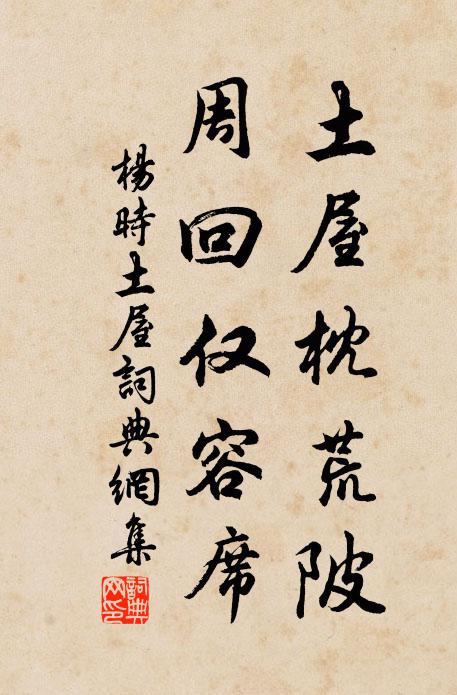 土屋枕荒陂
周回仅容席
楊時土屋詞典網集
詞典网印